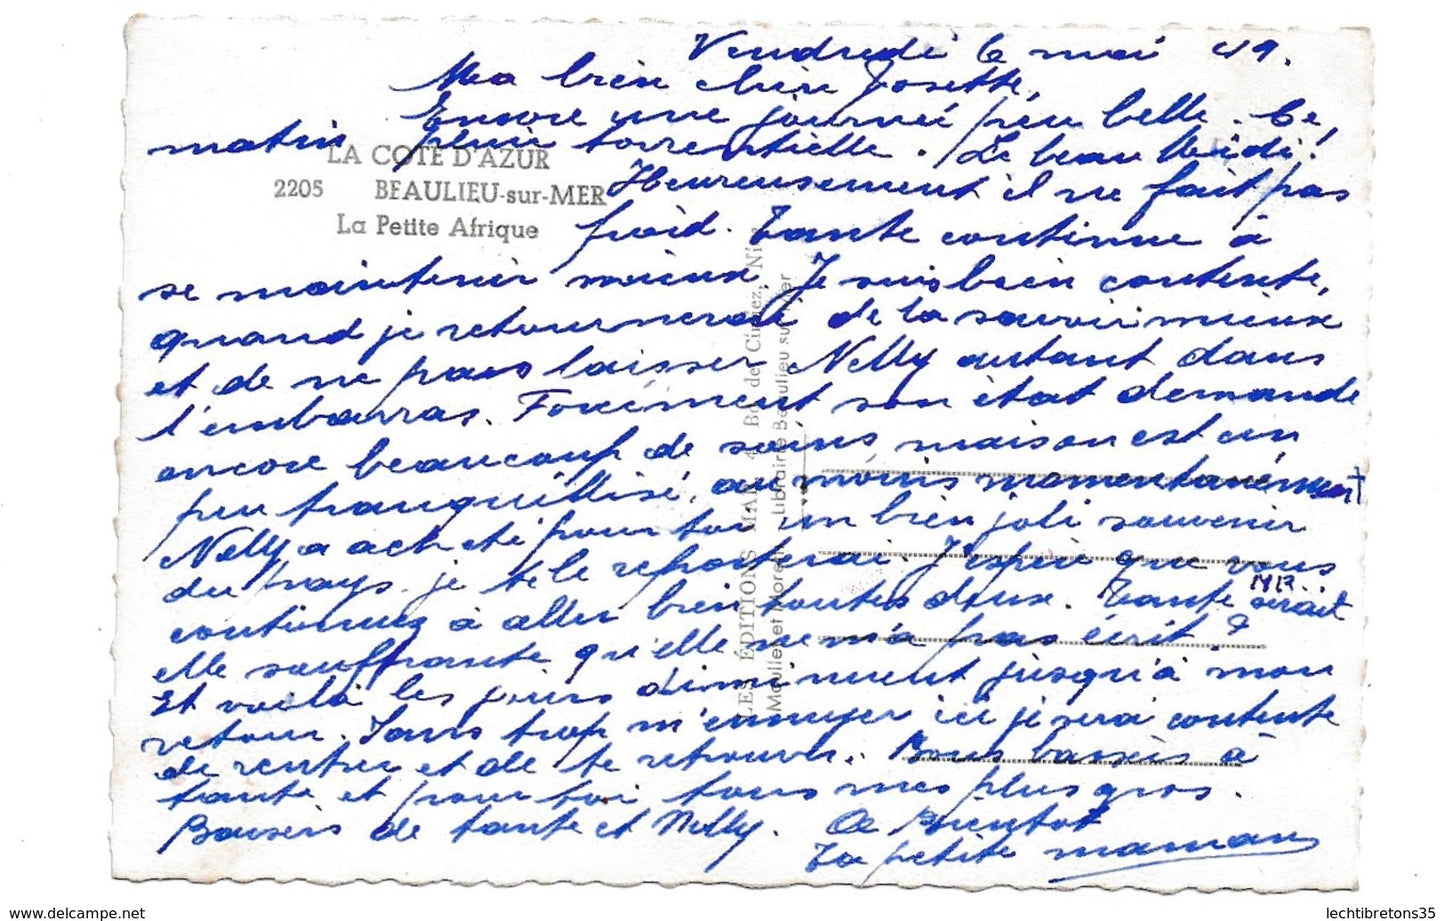 Vendredi 6 mai 49.
Ma bien chère Josette,
Encore une journée peu belle. Ce
matin pluie torrentielle. Le beau Midi!
LA COTE D'AZUR
2205 BEAULIEU-sur-MER
La Petite Afrique
Heureusement il ne fait pas
froid. Tante continue à
se maintenir mieux. Je suis bien contente,
quand je retournerai de la savoir mieux
et de ne pas laisser Nelly autant dans
l'embarras. Forcément son état demande
encore beaucoup de soins, mais on est un
peu tranquillisé, au moins momentanément
Nelly a acheté pour toi un bien joli souvenir
du pays, je te le reporterai. J'espère que vous
continuez à aller bien toutes deux. Tante MR. serait
elle souffrante qu'elle ne m'a pas écrit?
Et voilà les jours diminuent jusqu'à mon
retour. Sans trop m'ennuyer ici je serai contente
de rentrer et de te retrouver. Bons baisers à
tante et pour toi tous mes plus gros.
Baisers de tante et Nelly. A Bientot
Ta petite maman
LES ÉDITIONS MAR, 4, Bd de Cimiez, Nice
Moullet et Morel Librairie Beaulieu sur Mer
delcampe.net
lechtibretons35